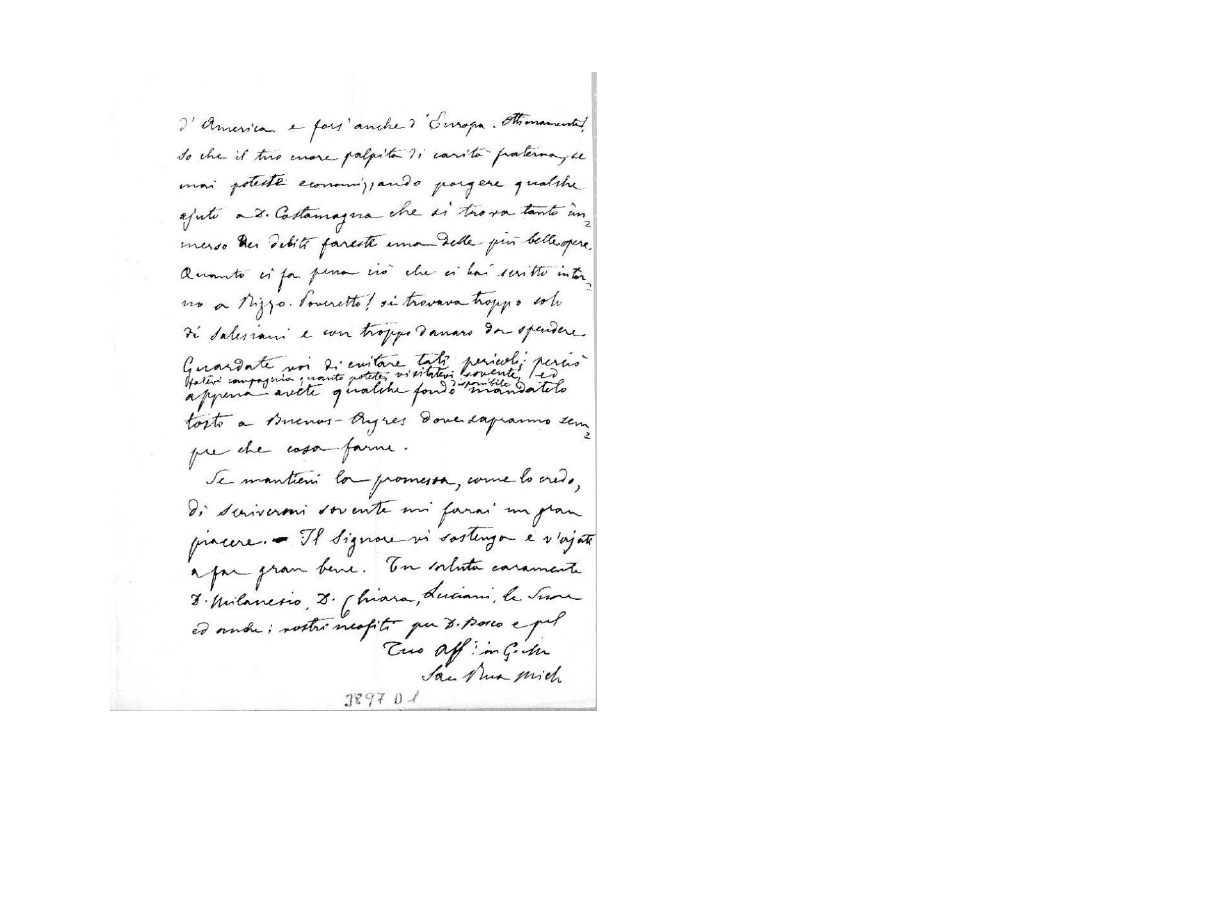 d' America e fors' anche d' Europa. Ottimamente!
So che il tuo cuore palpita di carità fraterna, se
mai poteste economizzando porgere qualche
ajuto a D. Costamagna che si trova tanto im=
merso nei debiti fareste una delle più belle opere.
Quanto ci fa pena ciò che ci hai scritto intor=
no a Rizzo. Poveretto! si trovava troppo solo
di Salesiani e con troppo danaro da spendere
Guardate voi di evitare tali pericoli; perciò
fatevi compagnia quanto potete, visitatevi sovente, ed
appena avete qualche fondo disponibile mandatelo
tosto a Buenos-Ayres dove sapranno sem=
pre che cosa farne.
Se mantieni la promessa, come lo credo,
di scrivermi sovente mi farai un gran
piacere. - Il Signore vi sostenga e v'ajuti
a far gran bene. Tu saluta caramente
D. Milanesio, D. Chiara, Luciani, le Suore
ed anche i vostri neofiti per D. Bosco e pel
Tuo Aff. in G. e M.
Sac Rua Mich
3897 D 1